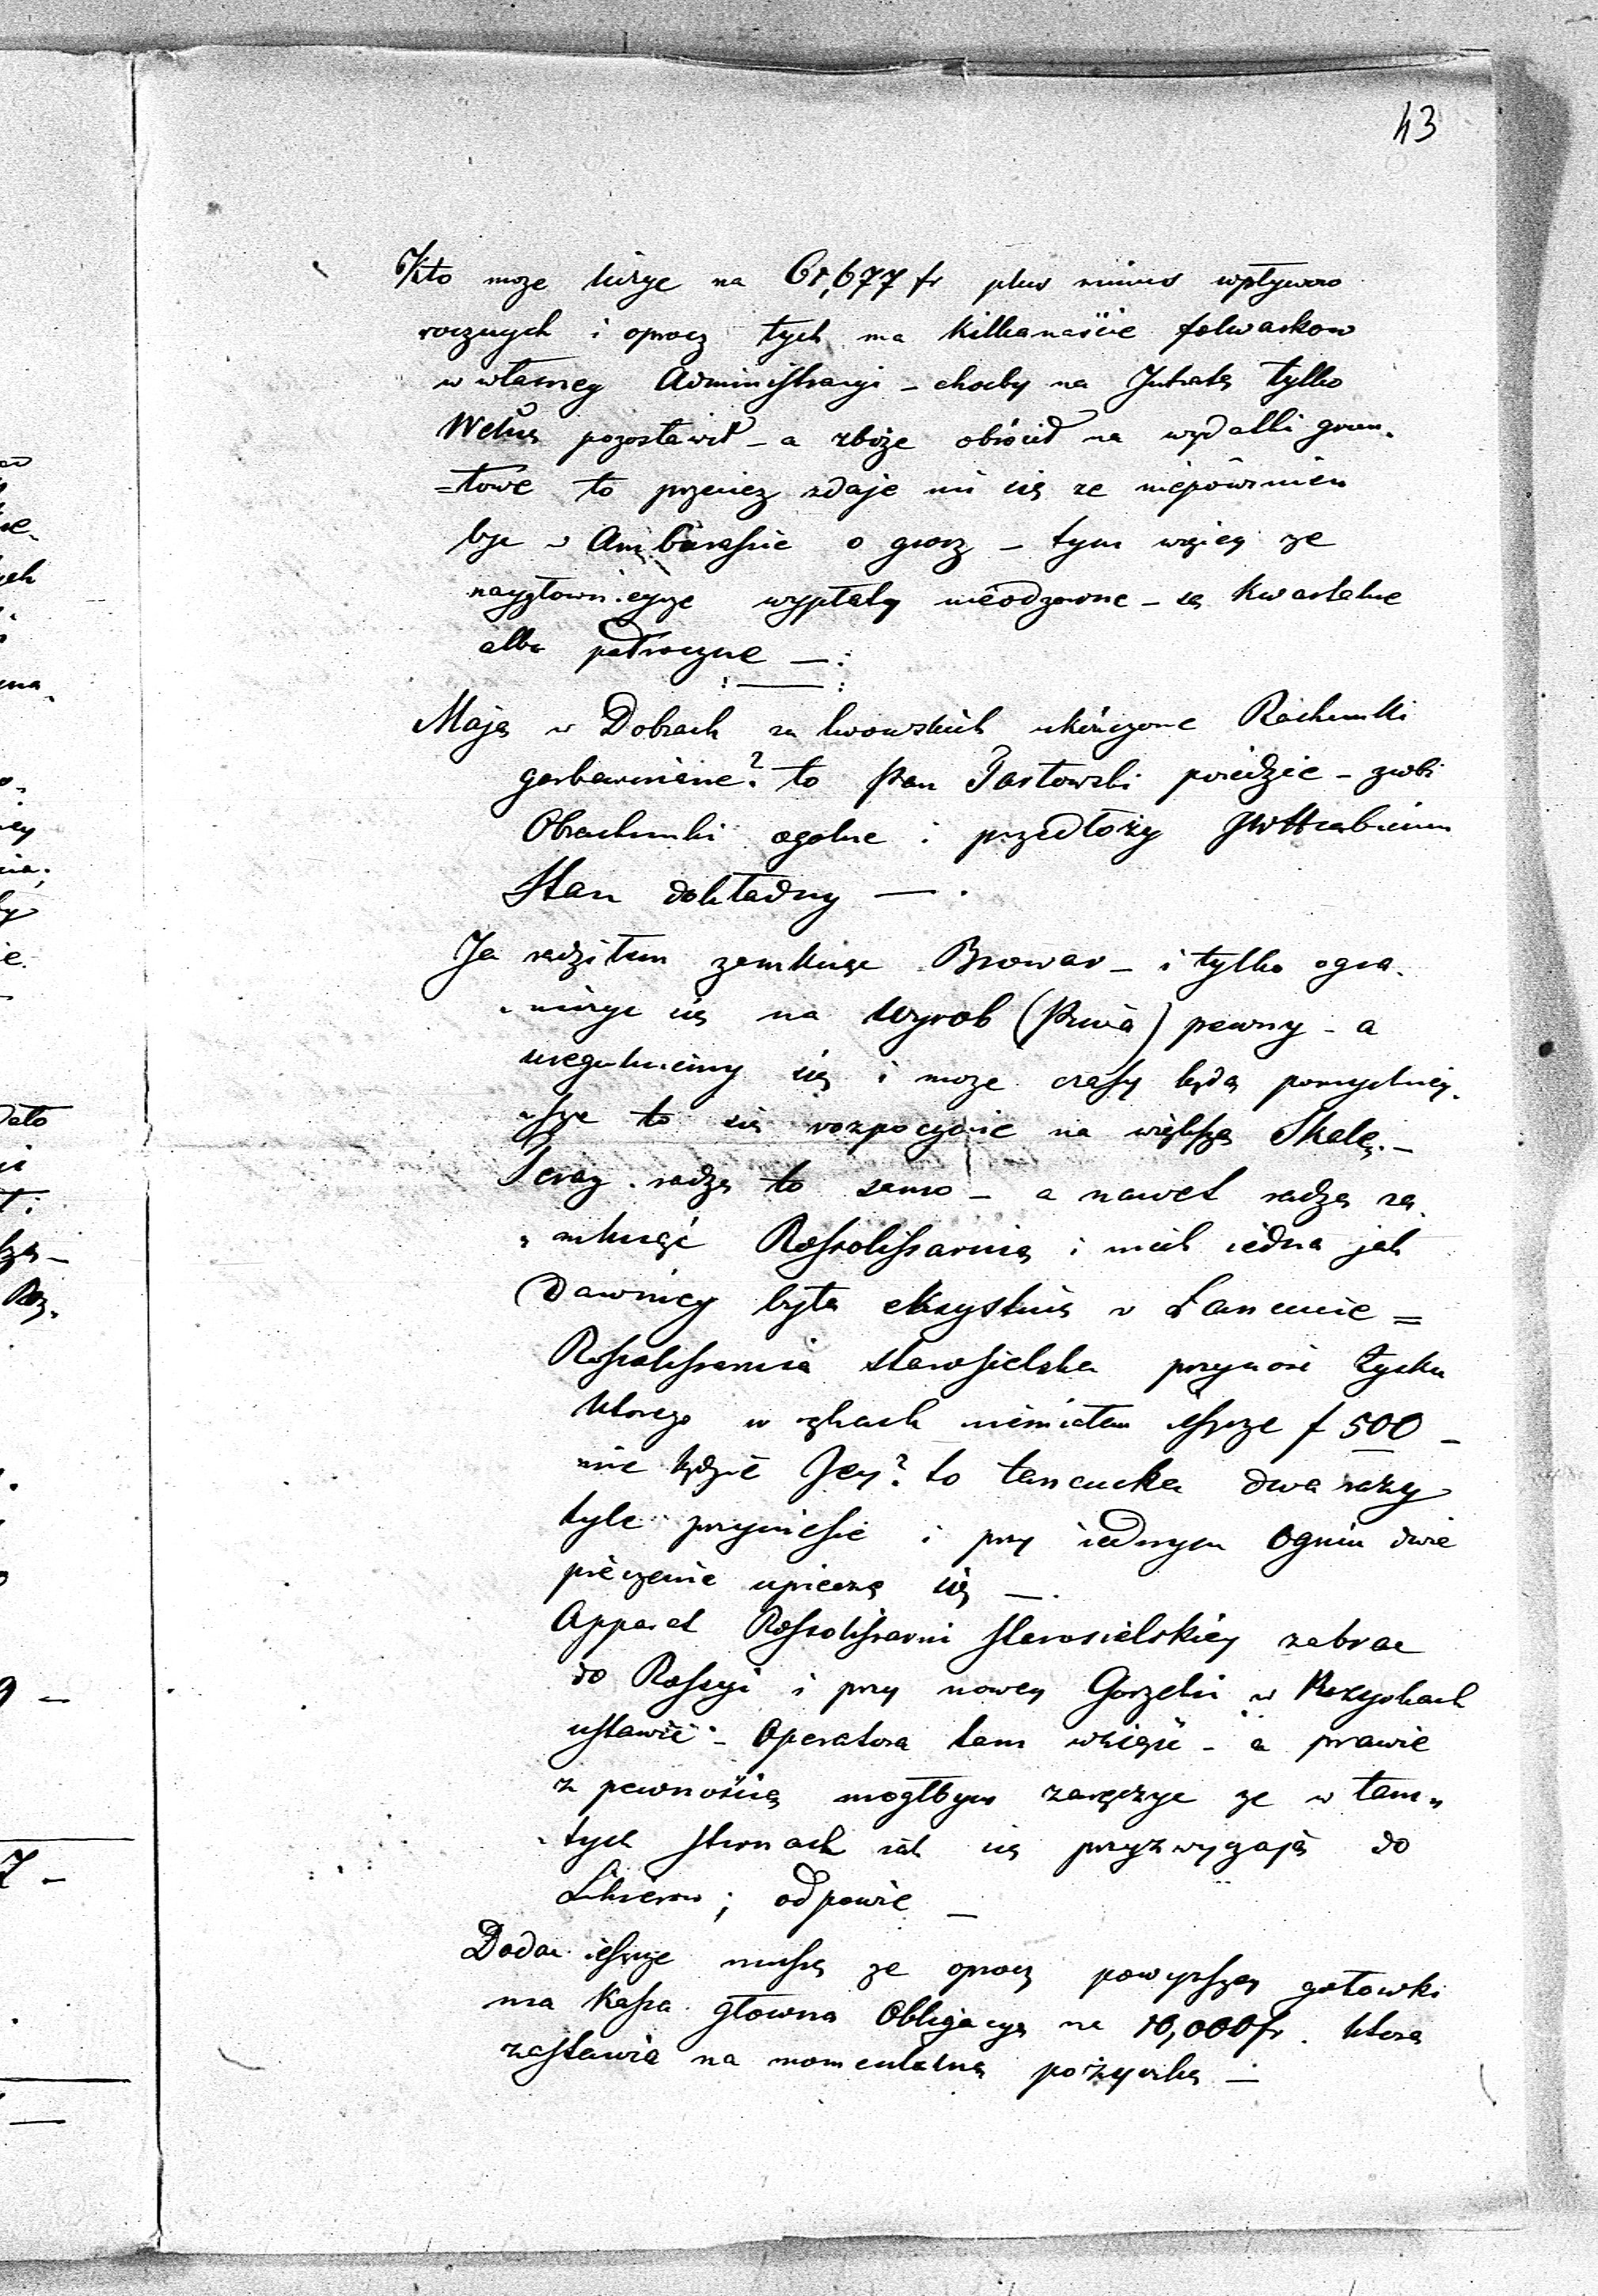 43
Kto moze liczyc na 61,677 fr plus minus wpływow
rocznych i oprocz tych ma kilkanaście folwarkow
w własney Administracyi – choćby na Intratę tylko
Wełnę pozostawił – a zboże obrócił na wydatki grun-
=towe to przeciez zdaje mi się ze niepowinien
byc w Ambarasie o grosz – tym więcey ze
naygłownieysze wypłaty nieodzowne – są kwartalne
albo połroczne —:
Mają w Dobrach za lwowskich ukończone Rachunki
garbarniane? to Pan Pastowski poiedzie – zrobi
Obrachunki ogolne i przedłoży JWHrabiemu
Stan dokładny — .
Ja radziłem zamknąc Browar – i tylko ogra-
-niczyc się na wyrob (Piwa) pewny – a
uregulujemy się i moze czasy będą pomyslniey-
-sze to się rozpocznie na większą Skalę. –
Teraz radzę to samo – a nawet radzę za-
-mknąć Rossolisarnią i niech iedna jak
Dawniey była exystuie w Łancucie =
Rossolisarnia starosielska przynosi zysku
ktorego w rękach niemiałem ieszcze f 500 –
nie będzie Jey? to łancucka dwa razy
tyle przyniesie i przy iednym Ogniu dwie
pieczenie upieczą się — .
Apparat Rossolisarni starosielskiey zabrac
do Rossyi i przy nowey Gorzelni w
ustawić – Operatora tam wziąść – a prawie
z pewnością mogłbym zaręczyc ze w tam-
-tych stronach iak się przyzwyczają do
Likierow ; odpowie —
Dodac ieszcze muszę ze oprocz powyzszey gotowki
ma Kassa głowna Obligacyą na 10,000 fr. ktora
zastawia na momentalną pożyczkę —